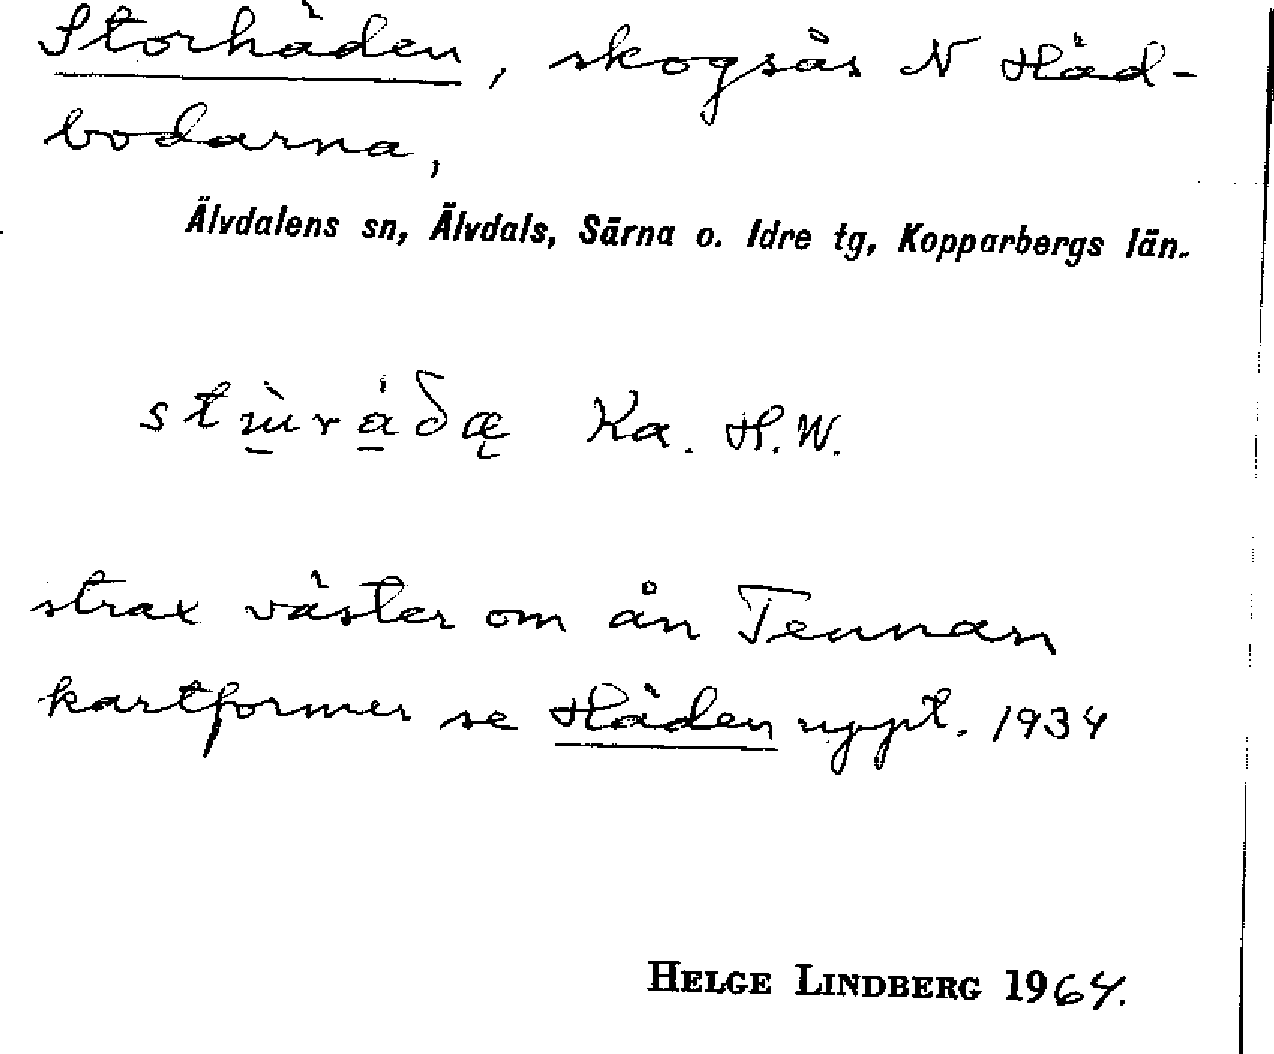 Storhäden, skogsås N Häd-
bodarna,
Älvdalens sn, Älvdals, Särna o. Idre tg, Kopparbergs län.
Ka. H.W.
strax väster om ån Tennan
kartformer se Häden uppt. 1934
HELGE LINDBERG 1964.